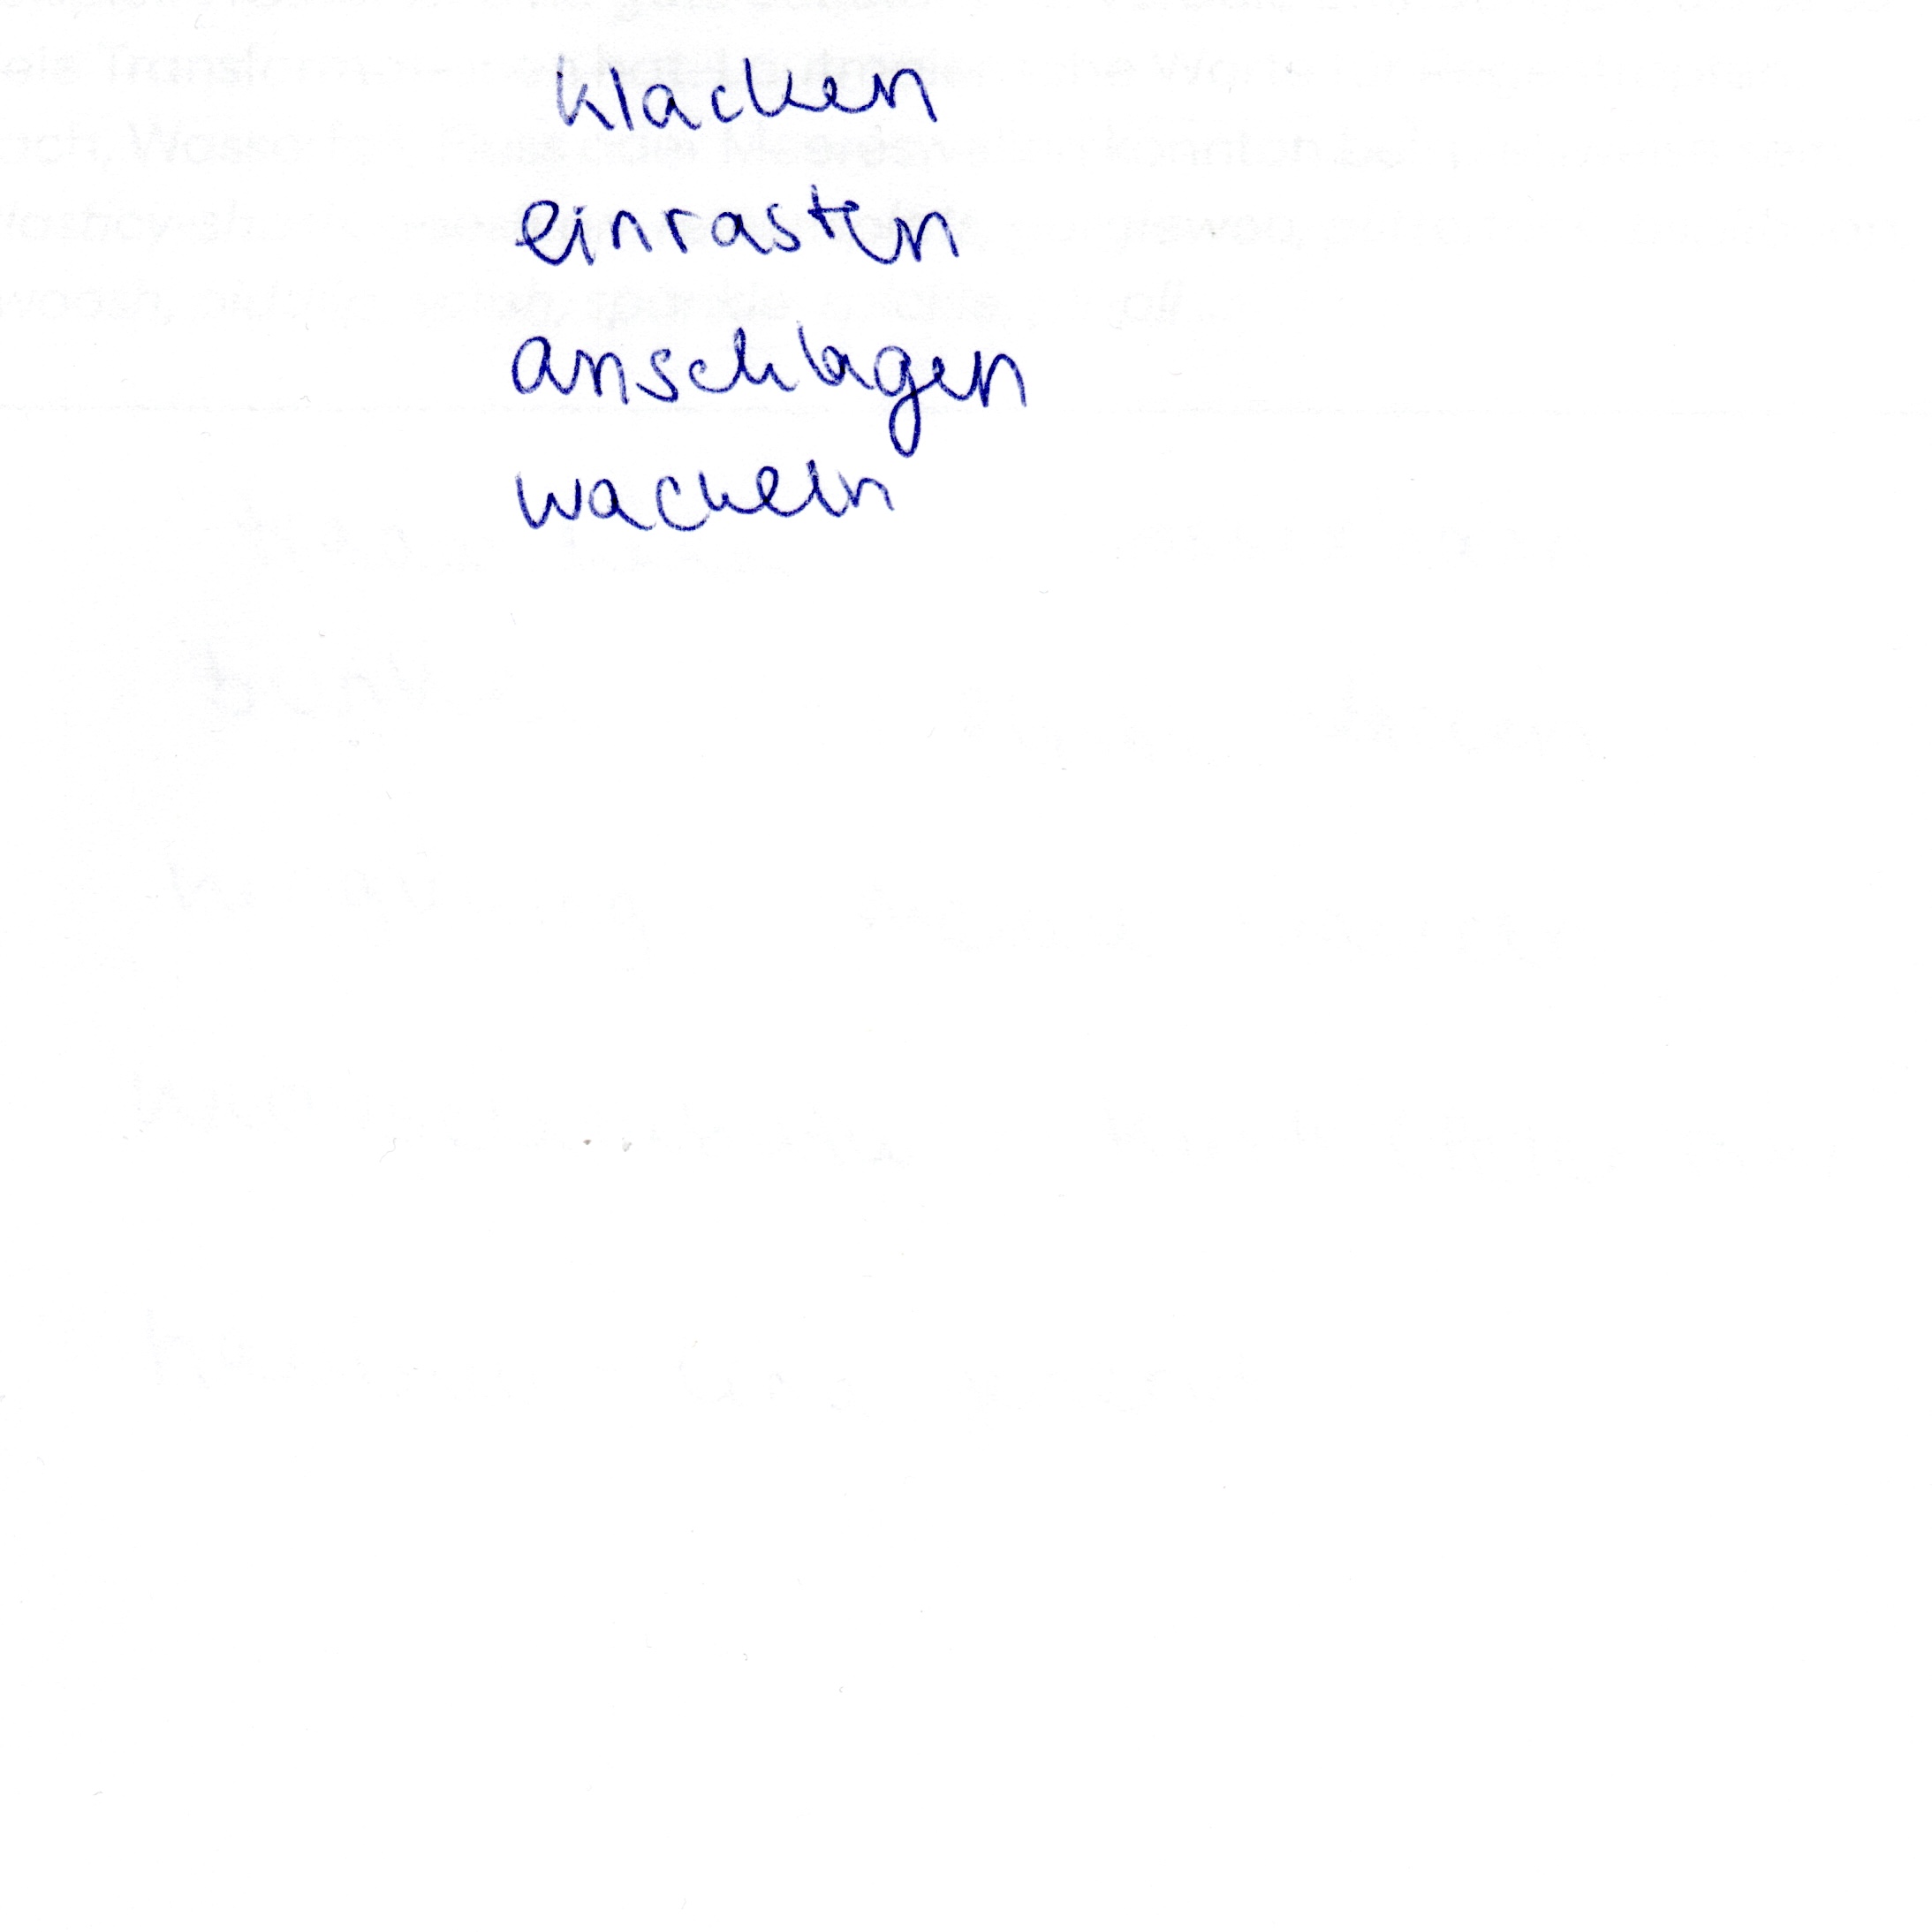 klacken
einrasten
anschlagen
wackeln